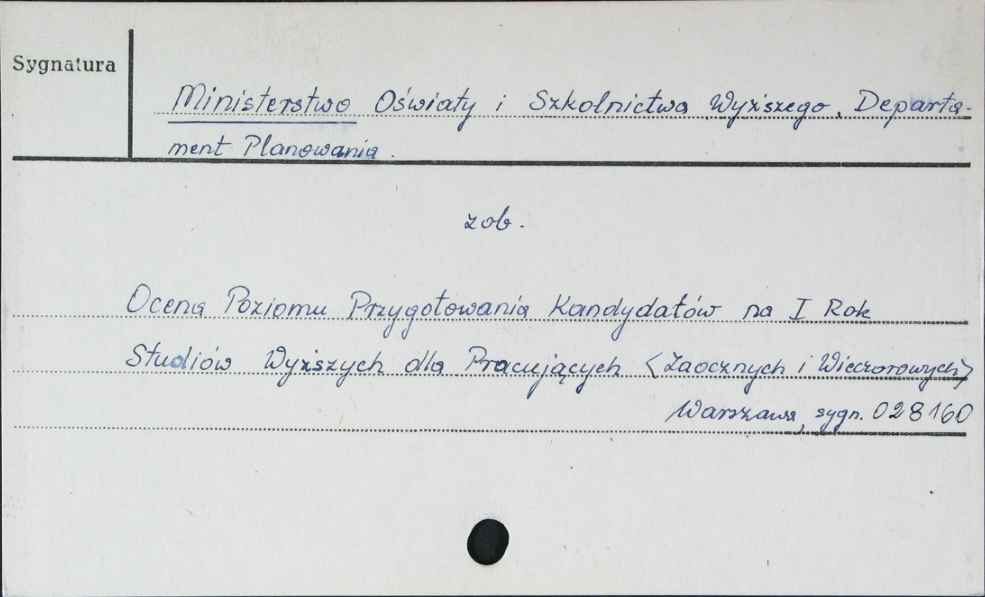 Sygnatura
Ministerstwo Oświaty i Szkolnictwa Wyższego, Departa-
ment Planowania.
zob.
Ocena Poziomu Przygotowania Kandydatów na I Rok
Studiów Wyższych dla Pracujących <Zaocznych i Wieczorowych>
Warszawa, sygn. 028160